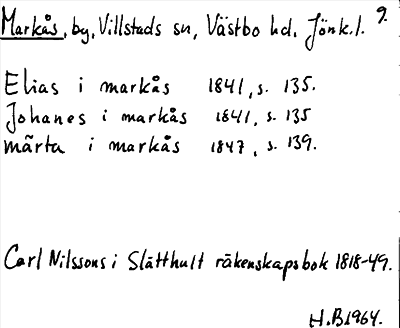 Markås, by, Villstads sn, Västbo hd. Jönk.l. 9.
Elias i markås 1841, s. 135.
Johanes i markås 1841, s. 135
märta i markås 1847, s. 139.
Carl Nilssons i Slätthult räkenskapsbok 1818-49.
H.B 1964.